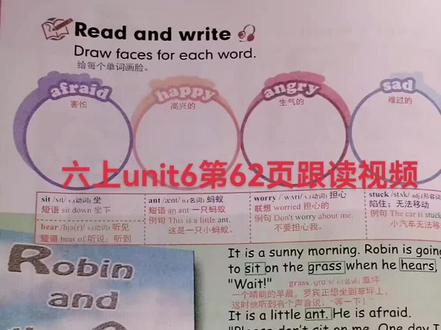 Read and write
Draw faces for each word.
给每个单词画脸。
afraid
害怕
happy
高兴的
angry
生气的
sad
难过的
六上unit6第62页跟读视频
sit /sɪt/ (动词) 坐
短语 sit down 坐下
hear /hɪə(r)/ (动词) 听见
短语 hear of 听说，听到
ant /ænt/ n.(名词) 蚂蚁
短语 an ant 一只蚂蚁
例句 This is a little ant.
这是一只小蚂蚁。
worry / wʌrɪ/ (动词) 担心
联想 worried 担心的
例句 Don't worry about me.
不要担心我。
陷住；无法移动
例句 The car is
小汽车无法移
Robin
and
It is a sunny morning. Robin is going
to sit on the grass when he hears,
"Wait!"
一个晴朗的早晨，罗宾正想坐到草坪上，
这时他听到有个声音说："等一下！"
It is a little ant. He is afraid.
"Please don't sit on me. One day